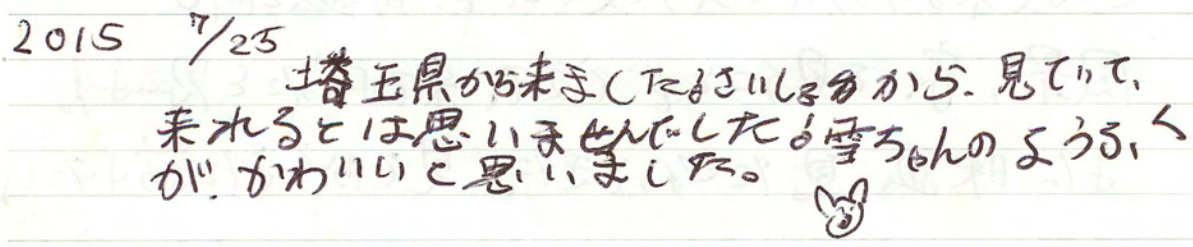 2015 7/25
埼玉県から来ました。さいしょから、見ていて、
来れるとは思いませんでした。雪ちゃんのようふく
が、かわいいと思いました。